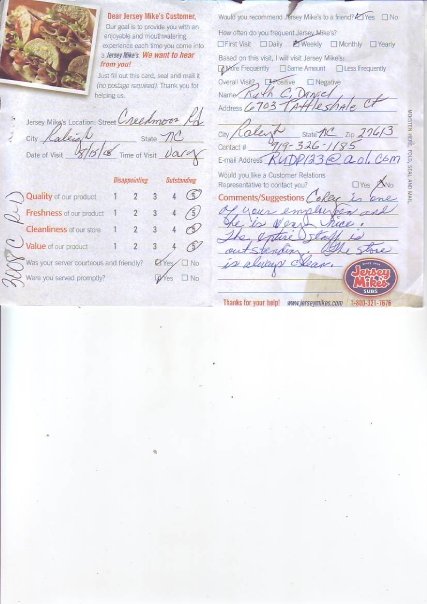 Dear Jersey Mike's Customer,
Our goal is to provide you with an
enjoyable and mouthwatering
experience each time you come into
a Jersey Mike's. We want to hear
from you!
Just fill out this card, seal and mail it
(no postage required). Thank you for
helping us.
Jersey Mike's Location: Street Creedmoor Rd
City Raleigh State NC
Date of Visit Time of Visit Vary
Disappointing Outstanding
Quality of our product 1 2 3 4 5
Freshness of our product 1 2 3 4 5
Cleanliness of our store 1 2 3 4 5
Value of our product 1 2 3 4 5
Was your server courteous and friendly? Yes No
Were you served promptly? Yes No
Would you recommend Jersey Mike's to a friend? Yes No
How often do you frequent Jersey Mike's?
First Visit Daily Weekly Monthly Yearly
Based on this visit, I will visit Jersey Mike's:
More Frequently Same Amount Less Frequently
Overall Visit? Positive Negative
Name Ruth C. Daniel
Address 6703 Tattleshale Ct
City Raleigh State NC Zip 27613
Contact # 919-326-1185
E-mail Address RUDP123@aol.com
Would you like a Customer Relations
Representative to contact you? Yes No
Comments/Suggestions Corey is one
of your employees and
he is very nice.
The entire staff is
outstanding. The store
is always clean.
SINCE 1956
Jersey
Mike's
SUBS
Thanks for your help! www.jerseymikes.com 1-800-321-7676
MOISTEN HERE, FOLD, SEAL AND MAIL